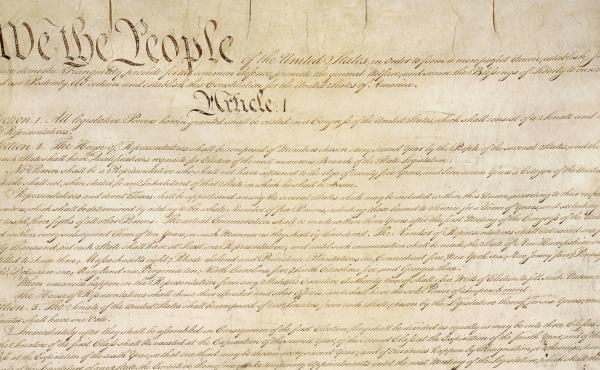 We the People of the United States, in order to form a more perfect Union, establish
domestic Tranquility, provide for the common defence, promote the general Welfare, and secure the Blessings of Liberty to
our Posterity, do ordain and establish this Constitution for the United States of America.
Article. I.
Section. 1. All legislative Powers herein granted shall be vested in a Congress of the United States, which shall consist of a Senate and
Representatives.
Section. 2. The House of Representatives shall be composed of Members chosen every second Year by the People of the several States, and the
each State shall have Qualifications requisite for Electors of the most numerous Branch of the State Legislature.
No Person shall be a Representative who shall not have attained to the Age of twenty five Years, and been seven Years a Citizen of the United
who shall not, when elected, be an Inhabitant of that State in which he shall be chosen.
Representatives and direct Taxes shall be apportioned among the several States which may be included within this Union, according to their respective
which shall be determined by adding to the whole Number of free Persons, including those bound to Service for a Term of Years, and excluding
not taxed, three fifths of all other Persons. The actual Enumeration shall be made within three Years after the first Meeting of the Congress of the United
within every subsequent Term of ten Years, in such Manner as they shall by Law direct. The Number of Representatives shall not exceed one for
thirty Thousand, but each State shall have at Least one Representative; and until such enumeration shall be made, the State of New Hampshire
entitled to chuse three, Massachusetts eight, Rhode Island and Providence Plantations one, Connecticut five, New York six, New Jersey four,
Delaware one, Maryland six, Virginia ten, North Carolina five, South Carolina five, and Georgia three.
When vacancies happen in the Representation from any State, the Executive Authority thereof shall issue Writs of Election to fill such Vacancies.
The House of Representatives shall chuse their Speaker and other Officers; and shall have the sole Power of Impeachment.
Section. 3. The Senate of the United States shall be composed of two Senators from each State, chosen by the Legislature thereof, for six Years; and
Senator shall have one Vote.
Immediately after they shall be assembled in Consequence of the first Election, they shall be divided as equally as may be into three Classes.
of the Senators of the first Class shall be vacated at the Expiration of the second Year, of the second Class at the Expiration of the fourth Year, and of the
Class at the Expiration of the sixth Year, so that one third may be chosen every second Year; and if Vacancies happen by Resignation, or otherwise, during
Recess of the Legislature of any State, the Executive thereof may make temporary Appointments until the next Meeting of the Legislature, which shall then